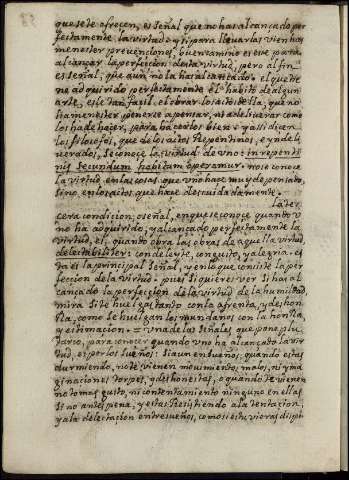 que se te ofrecen, es señal que no has alcançado per
fectamente la virtud: y si para llevarlas bien has
menester prevenciones, buen camino es ese para
alcançar la perfeccion de la virtud, pero al fin
es señal, que aun no la has alcançado. el que tie
ne adquirido perfectamente el habito de algun
arte, es le tan facil el obrar los actos de ella, que no
ha menester ponerse a pensar, ni a deliverar como
los ha de hacer, para hacerlos bien: y assi dicen
los filosofos, que de los actos Repentinos, e yn deli
verados, se conoçe la virtud de uno: in repenti
nis secundum habitum operamur. no se conoçe
la virtud en las cosas que uno haçe muy de pensado,
sino en los actos que haçe descuidadamente.
la ter
cera condicion, o señal, en que se conoçe quanto u
no ha adquirido, y alcançado perfectamente la
virtud, es, quando obra las obras de aquella virtud
delectabiliter: con deleyte, con gusto, y alegria. es
ta es la principal señal, y en lo que consiste la per
feccion de la virtud. pues si quieres ver si has al
cançado la perfeccion de la virtud de la humildad
mira si te huelgas tanto con la afrenta, y deshon
Ra, como se huelgan los mundanos con la honRa,
y estimacion. = una de las señales que pone plu
tarco, para conocer quando uno ha alcançado la vir
tud, es por los sueños: si aun en sueños, quando estas
durmiendo, no te vienen movimientos malos, ni yma
ginaciones torpes, y deshonestas, o quando te vienen
no tomas gusto, ni contentamiento ninguno en ellas
sino antes pena; y estas Resistiendo a la tentacion,
y a la delectacion entre sueños, como si estuvieras dispi